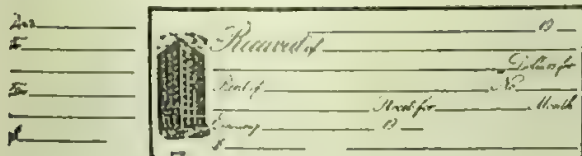 No.
To
For
$
19
Received of
Dollars for
Rent of No.
Street for Month
Ending 19
$